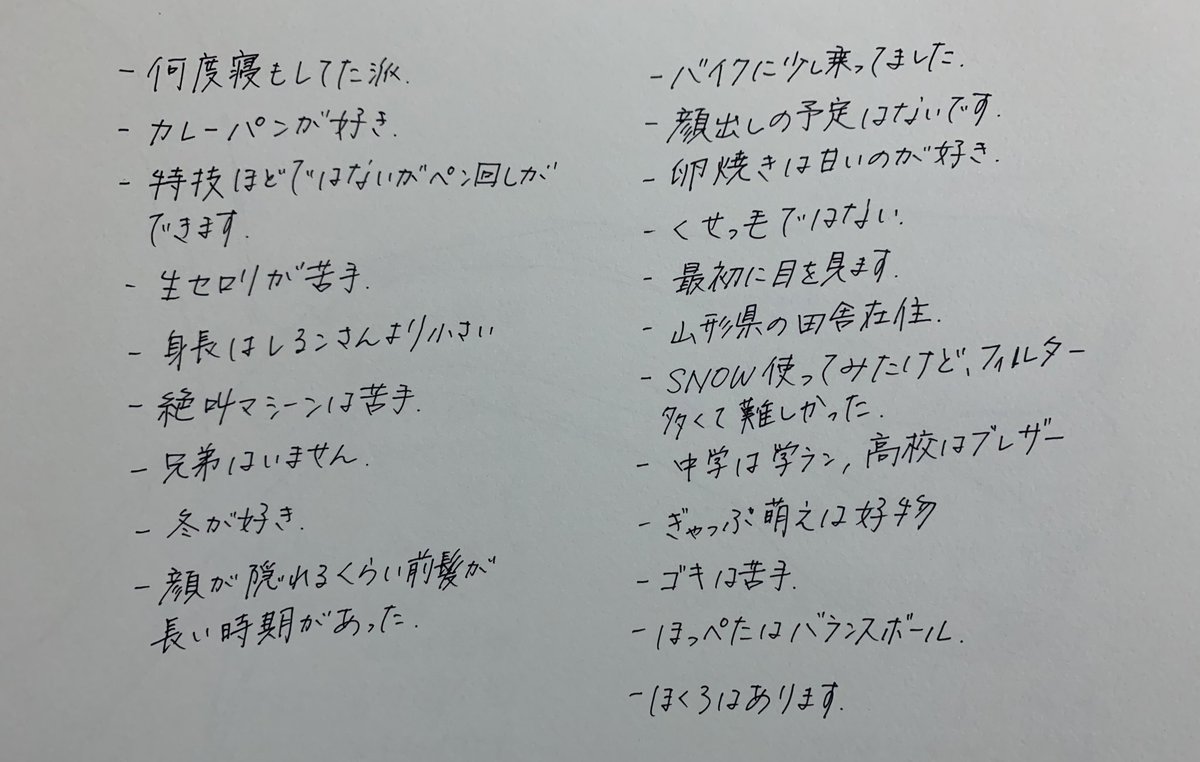 - 何度寝もしてた派.
- カレーパンが好き.
- 特技ほどではないがペン回しが
できます.
- 生セロリが苦手.
- 身長はしるこさんより小さい
- 絶叫マシーンは苦手.
- 兄弟はいません.
- 冬が好き.
- 顔が隠れるくらい前髪が
長い時期があった.
- バイクに少し乗ってました.
- 顔出しの予定はないです.
- 卵焼きは甘いのが好き.
- くせっ毛ではない.
- 最初に目を見ます.
- 山形県の田舎在住.
- SNOW使ってみたけど、フィルター
多くて難しかった.
- 中学は学ラン, 高校はブレザー
- ぎゃっぷ萌えは好物
- ゴキは苦手.
- ほっぺたはバランスボール.
- ほくろはあります.